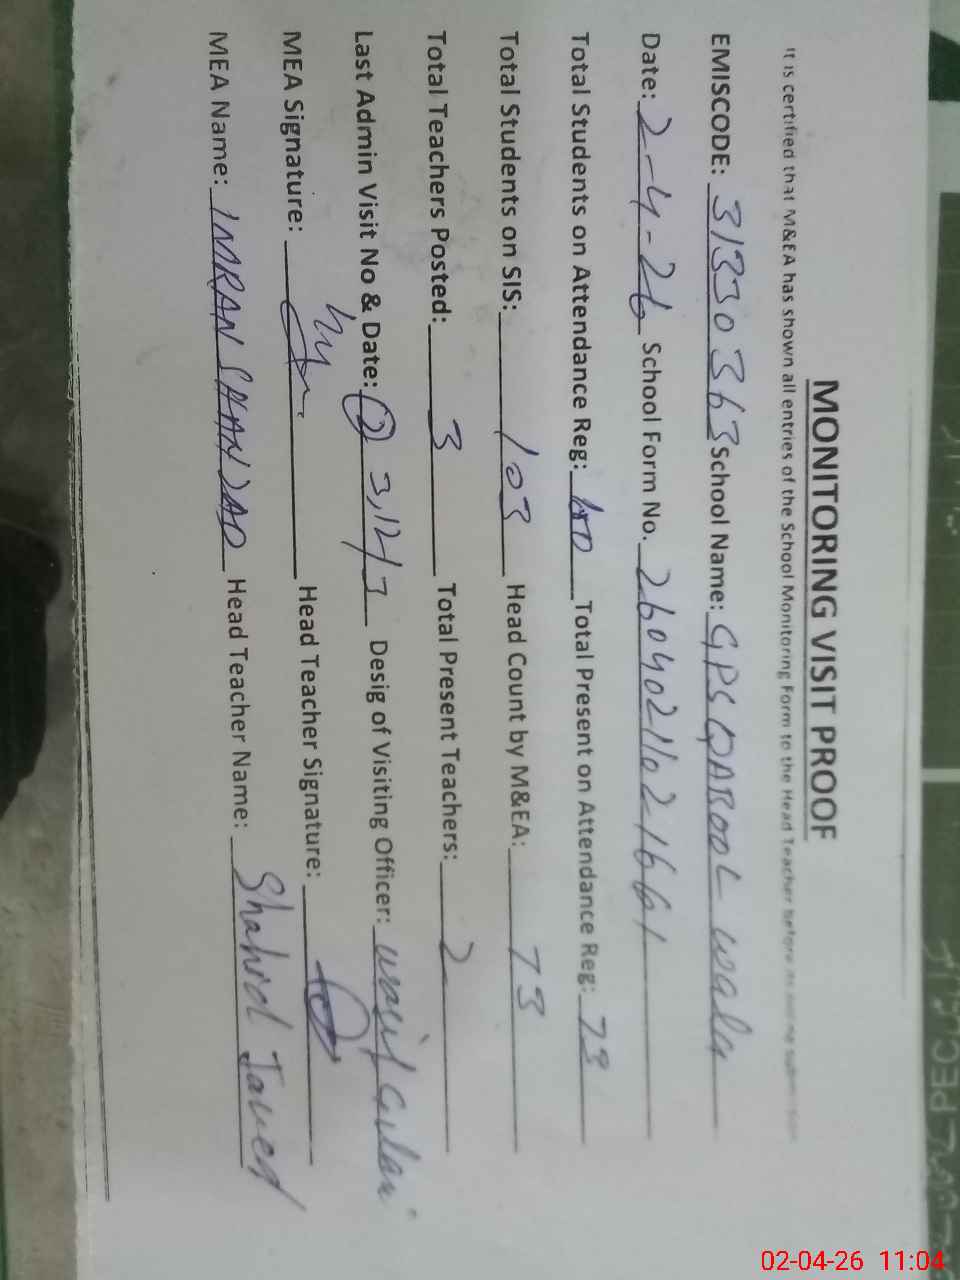 MONITORING VISIT PROOF
It is certified that M&EA has shown all entries of the School Monitoring Form to the Head Teacher before
EMISCODE: 31330363 School Name: GPS QABOOL wala
Date: 2-4-26 School Form No. 26040211021661
Total Students on Attendance Reg: 100 Total Present on Attendance Reg: 73
Total Students on SIS: 103 Head Count by M&EA: 73
Total Teachers Posted: 3 Total Present Teachers: 2
Last Admin Visit No & Date: Desig of Visiting Officer:
MEA Signature: Head Teacher Signature:
MEA Name: IMRAN SHAHZAD Head Teacher Name: Shahid Javed
02-04-26 11:04